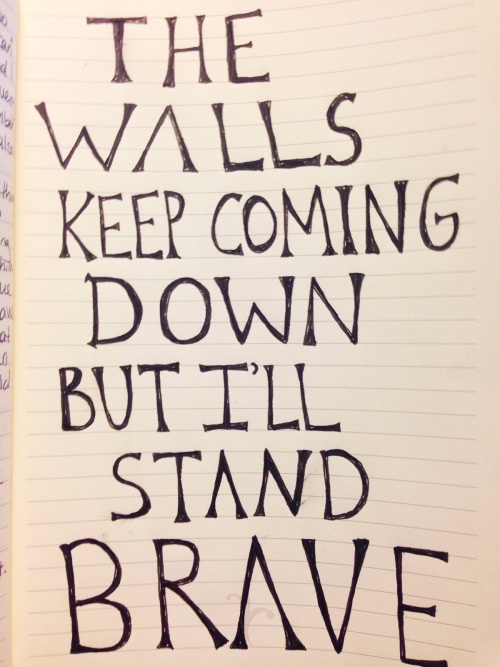 THE
WALLS
KEEP COMING
DOWN
BUT I'LL
STAND
BRAVE